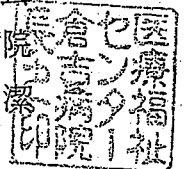 医療福祉
センター
倉吉病院
長之印
院
潔